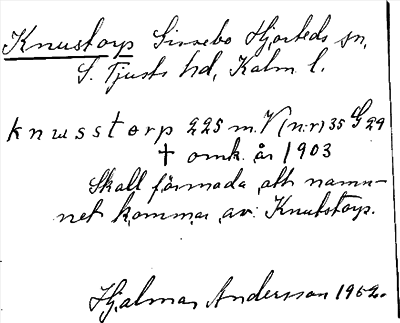 Knustorp Sinnebo Hjorteds sn,
S. Tjusts hd, Kalm. l.
knusstorp 225 m. V (n:r) 35 G 29
† omk. år 1903
Skall förmoda att namn-
net kommer av Knutstorp.
Hjalmar Andersson 1952.